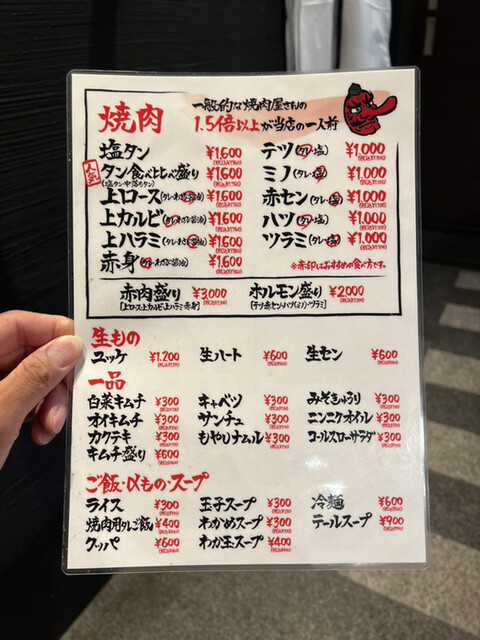 焼肉
一般的な焼肉屋さんの
1.5倍以上が当店の一人前
塩タン ¥1,600
人気 タン食べ比べ盛り ¥1,600
上ロース(タレ・わさび醤油) ¥1,600
上カルビ(タレ・わさび醤油) ¥1,600
上ハラミ(タレ・わさび醤油) ¥1,600
赤身(タレ・わさび醤油) ¥1,600
テツ(タレ・塩) ¥1,000
ミノ(タレ・塩) ¥1,000
赤セン(タレ・塩) ¥1,000
ハツ(タレ・塩) ¥1,000
ツラミ(タレ・塩) ¥1,000
※赤印はおすすめの食べ方です。
赤肉盛り ¥3,000
[上ロース・上カルビ・上ハラミ・赤身]
ホルモン盛り ¥2,000
[テツ・赤セン・ハツ・ミノ・ツラミ]
生もの
ユッケ ¥1,200 生ハート ¥600 生セン ¥600
一品
白菜キムチ ¥300 キャベツ ¥300 みそきゅうり ¥300
オイキムチ ¥300 サンチュ ¥300 ニンニクオイル ¥300
カクテキ ¥300 もやしナムル ¥300 コールスローサラダ ¥300
キムチ盛り ¥600
ご飯・〆もの・スープ
ライス ¥300 玉子スープ ¥300 冷麺 ¥600
焼肉用タレご飯 ¥400 わかめスープ ¥300 テールスープ ¥900
クッパ ¥600 わか玉スープ ¥400